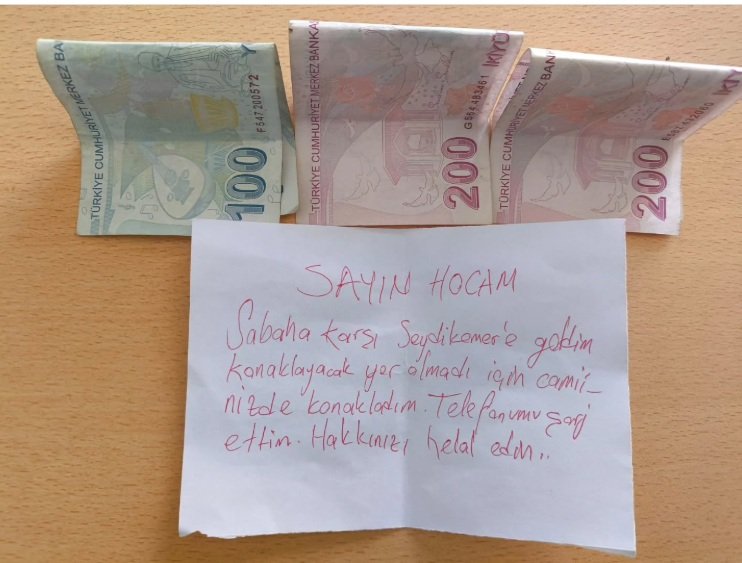 TÜRKİYE CUMHURİYET MERKEZ BA
100
F547200572
TÜRKİYE CUMHURİYET MERKEZ BANKAS
200
TÜRKİYE CUMHURİYET MERKEZ BAN
200
SAYIN HOCAM
Sabaha karşı Seydikemer'e geldim
konaklayacak yer olmadı için camii-
nizde konakladım. Telefonumu şarj
ettim. Hakkınızı helal edin..